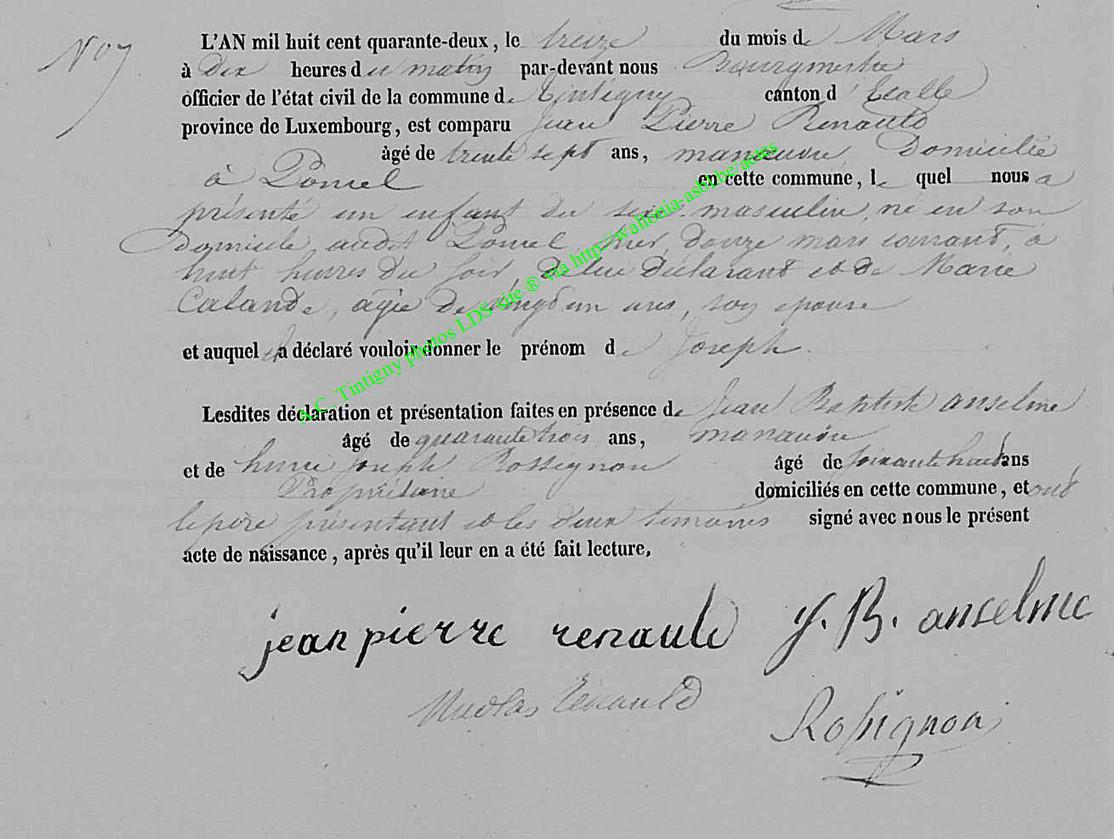 N° 7
L'AN mil huit cent quarante-deux, le treize du mois de Mars
à Dix heures du matin par-devant nous Bourgmestre
officier de l'état civil de la commune de Tintigny canton d'Etalle
province de Luxembourg, est comparu Jean Pierre Renauld
âgé de trente sept ans, manœuvre, Domicilié
à Poncel en cette commune, lequel nous a
présenté un enfant du sexe masculin, né en son
Domicile, audit Poncel, hier, douze mars courant, à
huit heures du soir, de lui déclarant et de Marie
Calande, agée de vingt un ans, son épouse
et auquel il a déclaré vouloir donner le prénom de Joseph.
Lesdites déclaration et présentation faites en présence de Jean Baptiste anselme
âgé de quarante trois ans, manœuvre
et de henri joseph Rossignon âgé de soixante huit ans
Propriétaire domiciliés en cette commune, et ont
le père présentant et les deux témoins signé avec nous le présent
acte de naissance, après qu'il leur en a été fait lecture.
jean pierre renauld J. B. anselme
Nicolas Renauld Rossignon
A.C. Tintigny photos LDS site ® via http://wallonia-asbl.be/actes